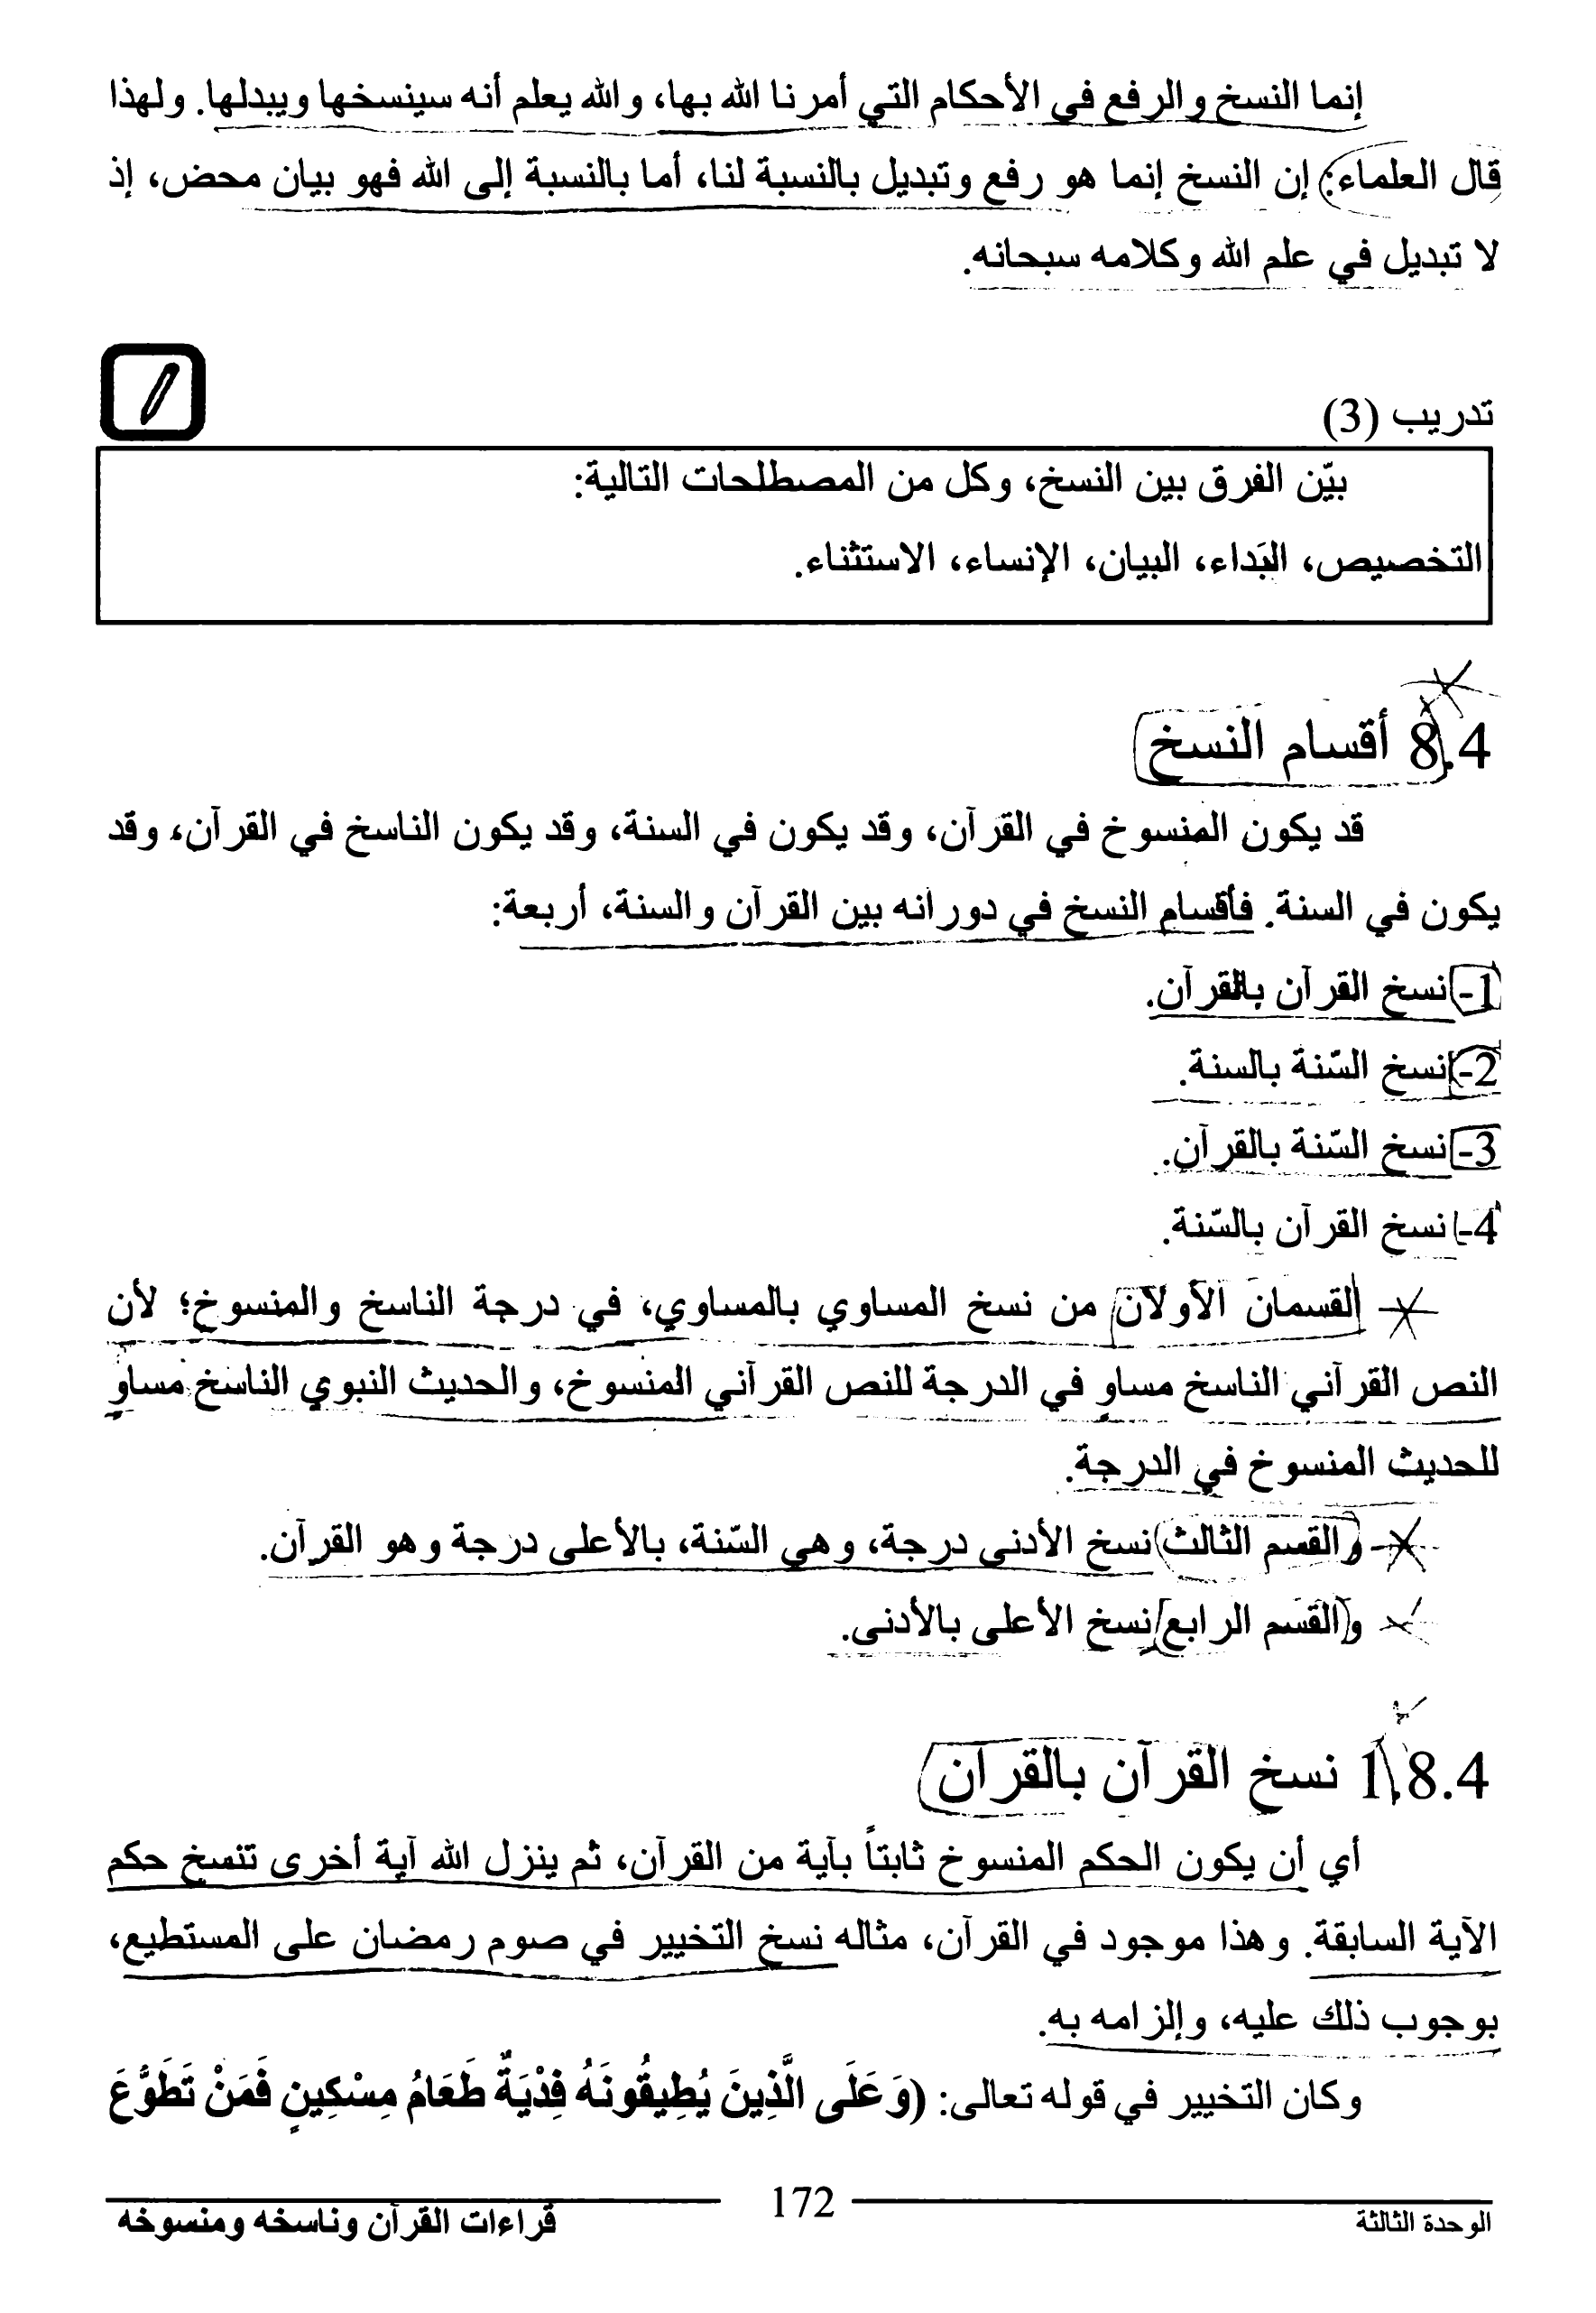 إنما النسخ والرفع في الأحكام التي أمرنا الله بها، والله يعلم أنه سينسخها ويبدلها. ولهذا
قال العلماء: إن النسخ إنما هو رفع وتبديل بالنسبة لنا، أما بالنسبة إلى الله فهو بيان محض، إذ
لا تبديل في علم الله وكلامه سبحانه.
تدريب (3)
بيّن الفرق بين النسخ، وكل من المصطلحات التالية:
التخصيص، البَداء، البيان، الإنساء، الاستثناء.
8.4 أقسام النسخ
قد يكون المنسوخ في القرآن، وقد يكون في السنة، وقد يكون الناسخ في القرآن، وقد
يكون في السنة. فأقسام النسخ في دورانه بين القرآن والسنة، أربعة:
1- نسخ القرآن بالقرآن.
2- نسخ السّنة بالسنة.
3- نسخ السّنة بالقرآن.
4- نسخ القرآن بالسّنة.
القسمان الأولان من نسخ المساوي بالمساوي، في درجة الناسخ والمنسوخ؛ لأن
النص القرآني الناسخ مساوٍ في الدرجة للنص القرآني المنسوخ، والحديث النبوي الناسخ مساوٍ
للحديث المنسوخ في الدرجة.
والقسم الثالث نسخ الأدنى درجة، وهي السّنة، بالأعلى درجة وهو القرآن.
والقسم الرابع نسخ الأعلى بالأدنى.
1.8.4 نسخ القرآن بالقرآن
أي أن يكون الحكم المنسوخ ثابتاً بآية من القرآن، ثم ينزل الله آية أخرى تنسخ حكم
الآية السابقة. وهذا موجود في القرآن، مثاله نسخ التخيير في صوم رمضان على المستطيع،
بوجوب ذلك عليه، وإلزامه به.
وكان التخيير في قوله تعالى: (وَعَلَى الَّذِينَ يُطِيقُونَهُ فِدْيَةٌ طَعَامُ مِسْكِينٍ فَمَنْ تَطَوَّعَ
الوحدة الثالثة 172 قراءات القرآن وناسخه ومنسوخه